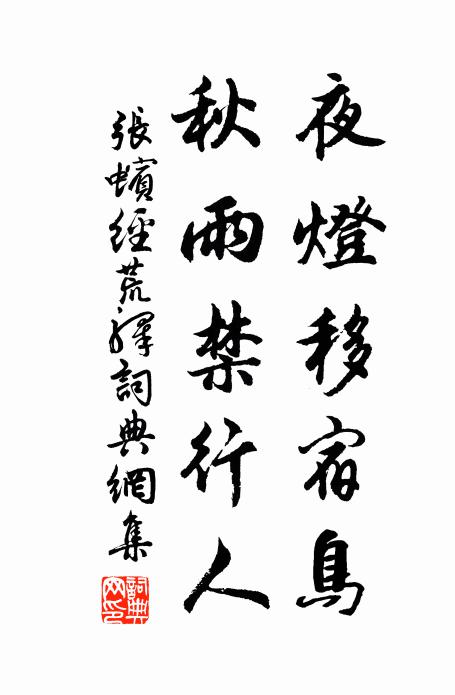 夜燈移宿鳥
秋雨禁行人
張蠙經荒驛詞典網集
詞典網印